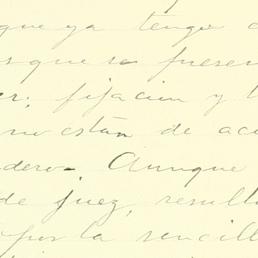 que ya tengo
s que se presen
er; fijacion y t
no están de ac
dero. Aunque
de juez, result
por la sencill